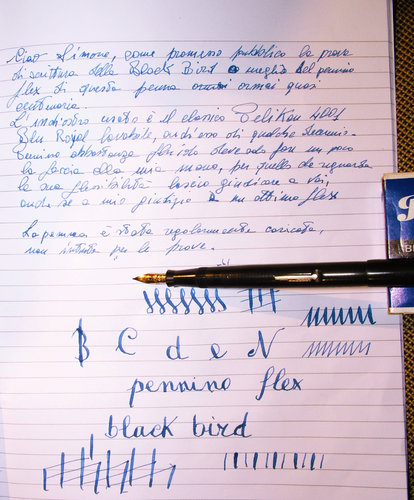 Ciao Simone, come promesso pubblico la prova
di scrittura della Black Bird o meglio del pennino
flex di questa penna ormai quasi
centenaria.
L'inchiostro usato è il classico Pelikan 4001
Blu Royal lavabile, anch'esso di qualche decennio.
Pennino abbastanza flessibile deve ado fare un poco
la faccia alla mia mano, per quello che riguarda
la sua flessibilità lascio giudicare a voi,
anche se a mio giudizio è un ottimo flex
La penna è stata regolarmente caricata,
non intinta per le prove.
B C d e N
pennino flex
black bird